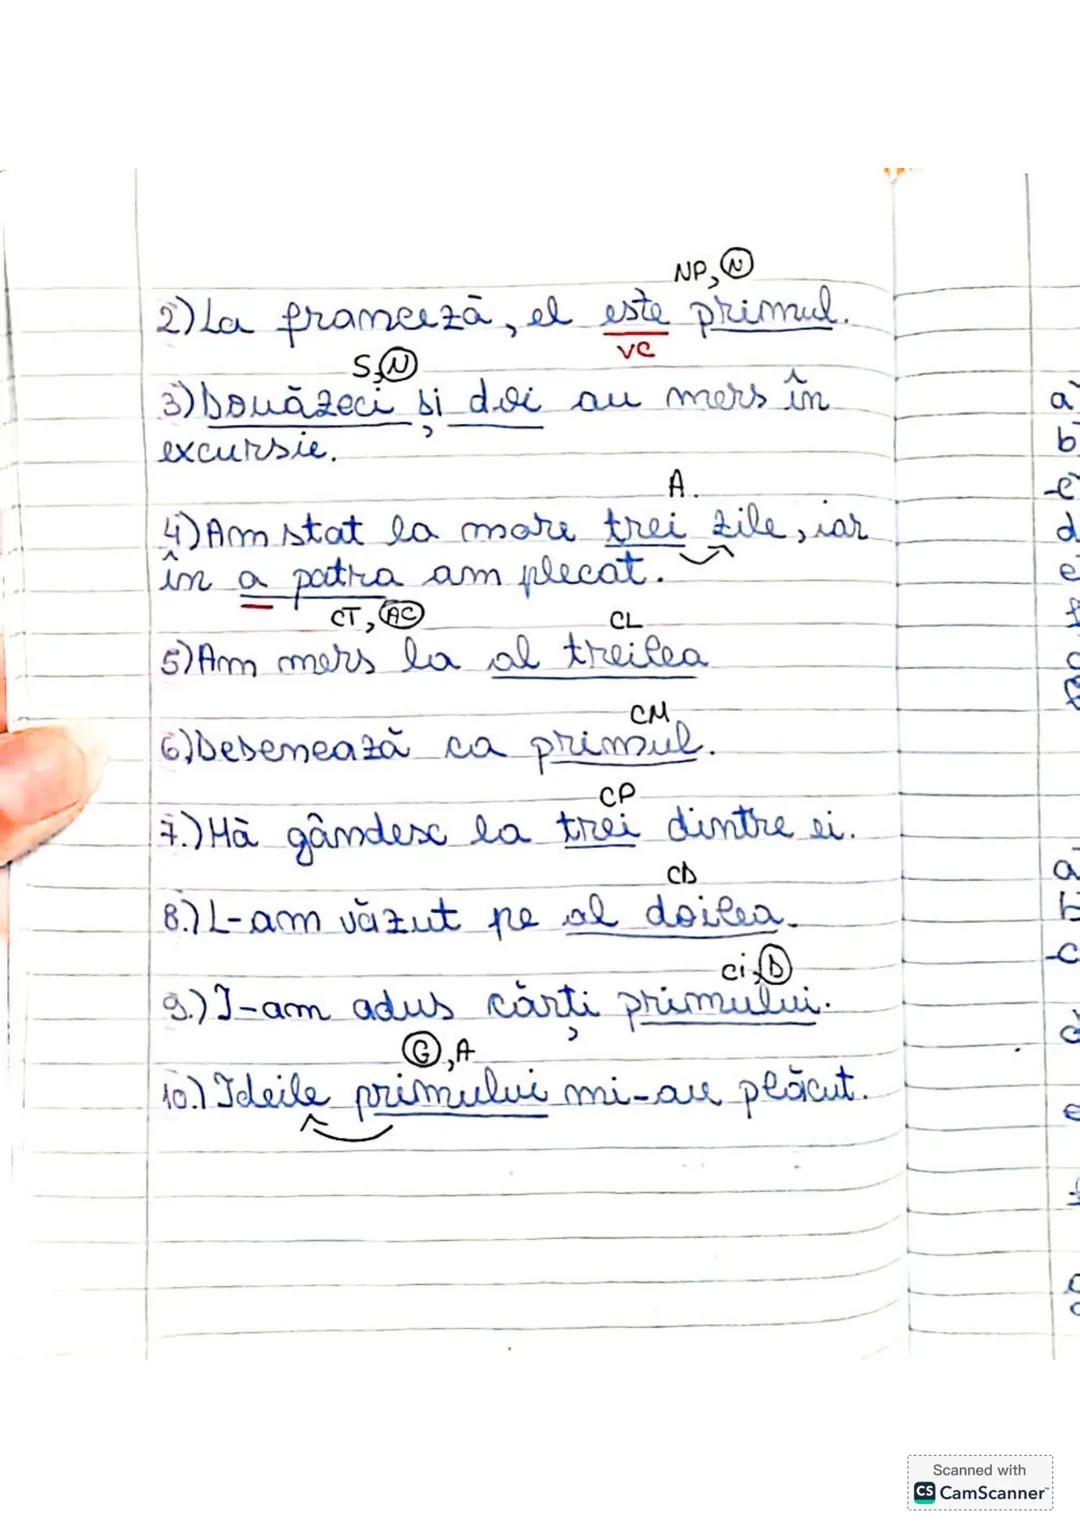 NP, N
2) La franceză, el este primul.
vc
S, N
3) Douăzeci și doi au mers în
excursie.
A.
4) Am stat la mare trei zile, iar
în a patra am plecat.
CT, AC
CL
5) Am mers la al treilea
CM
6) Desenează ca primul.
CP
7.) Mă gândesc la trei dintre ei.
CD
8.) L-am văzut pe al doilea.
ci, D
9.) I-am adus cărți primului.
G, A
10.) Ideile primului mi-au plăcut.
a
b
c
d
e
a
b
c
e
Scanned with
CS CamScanner